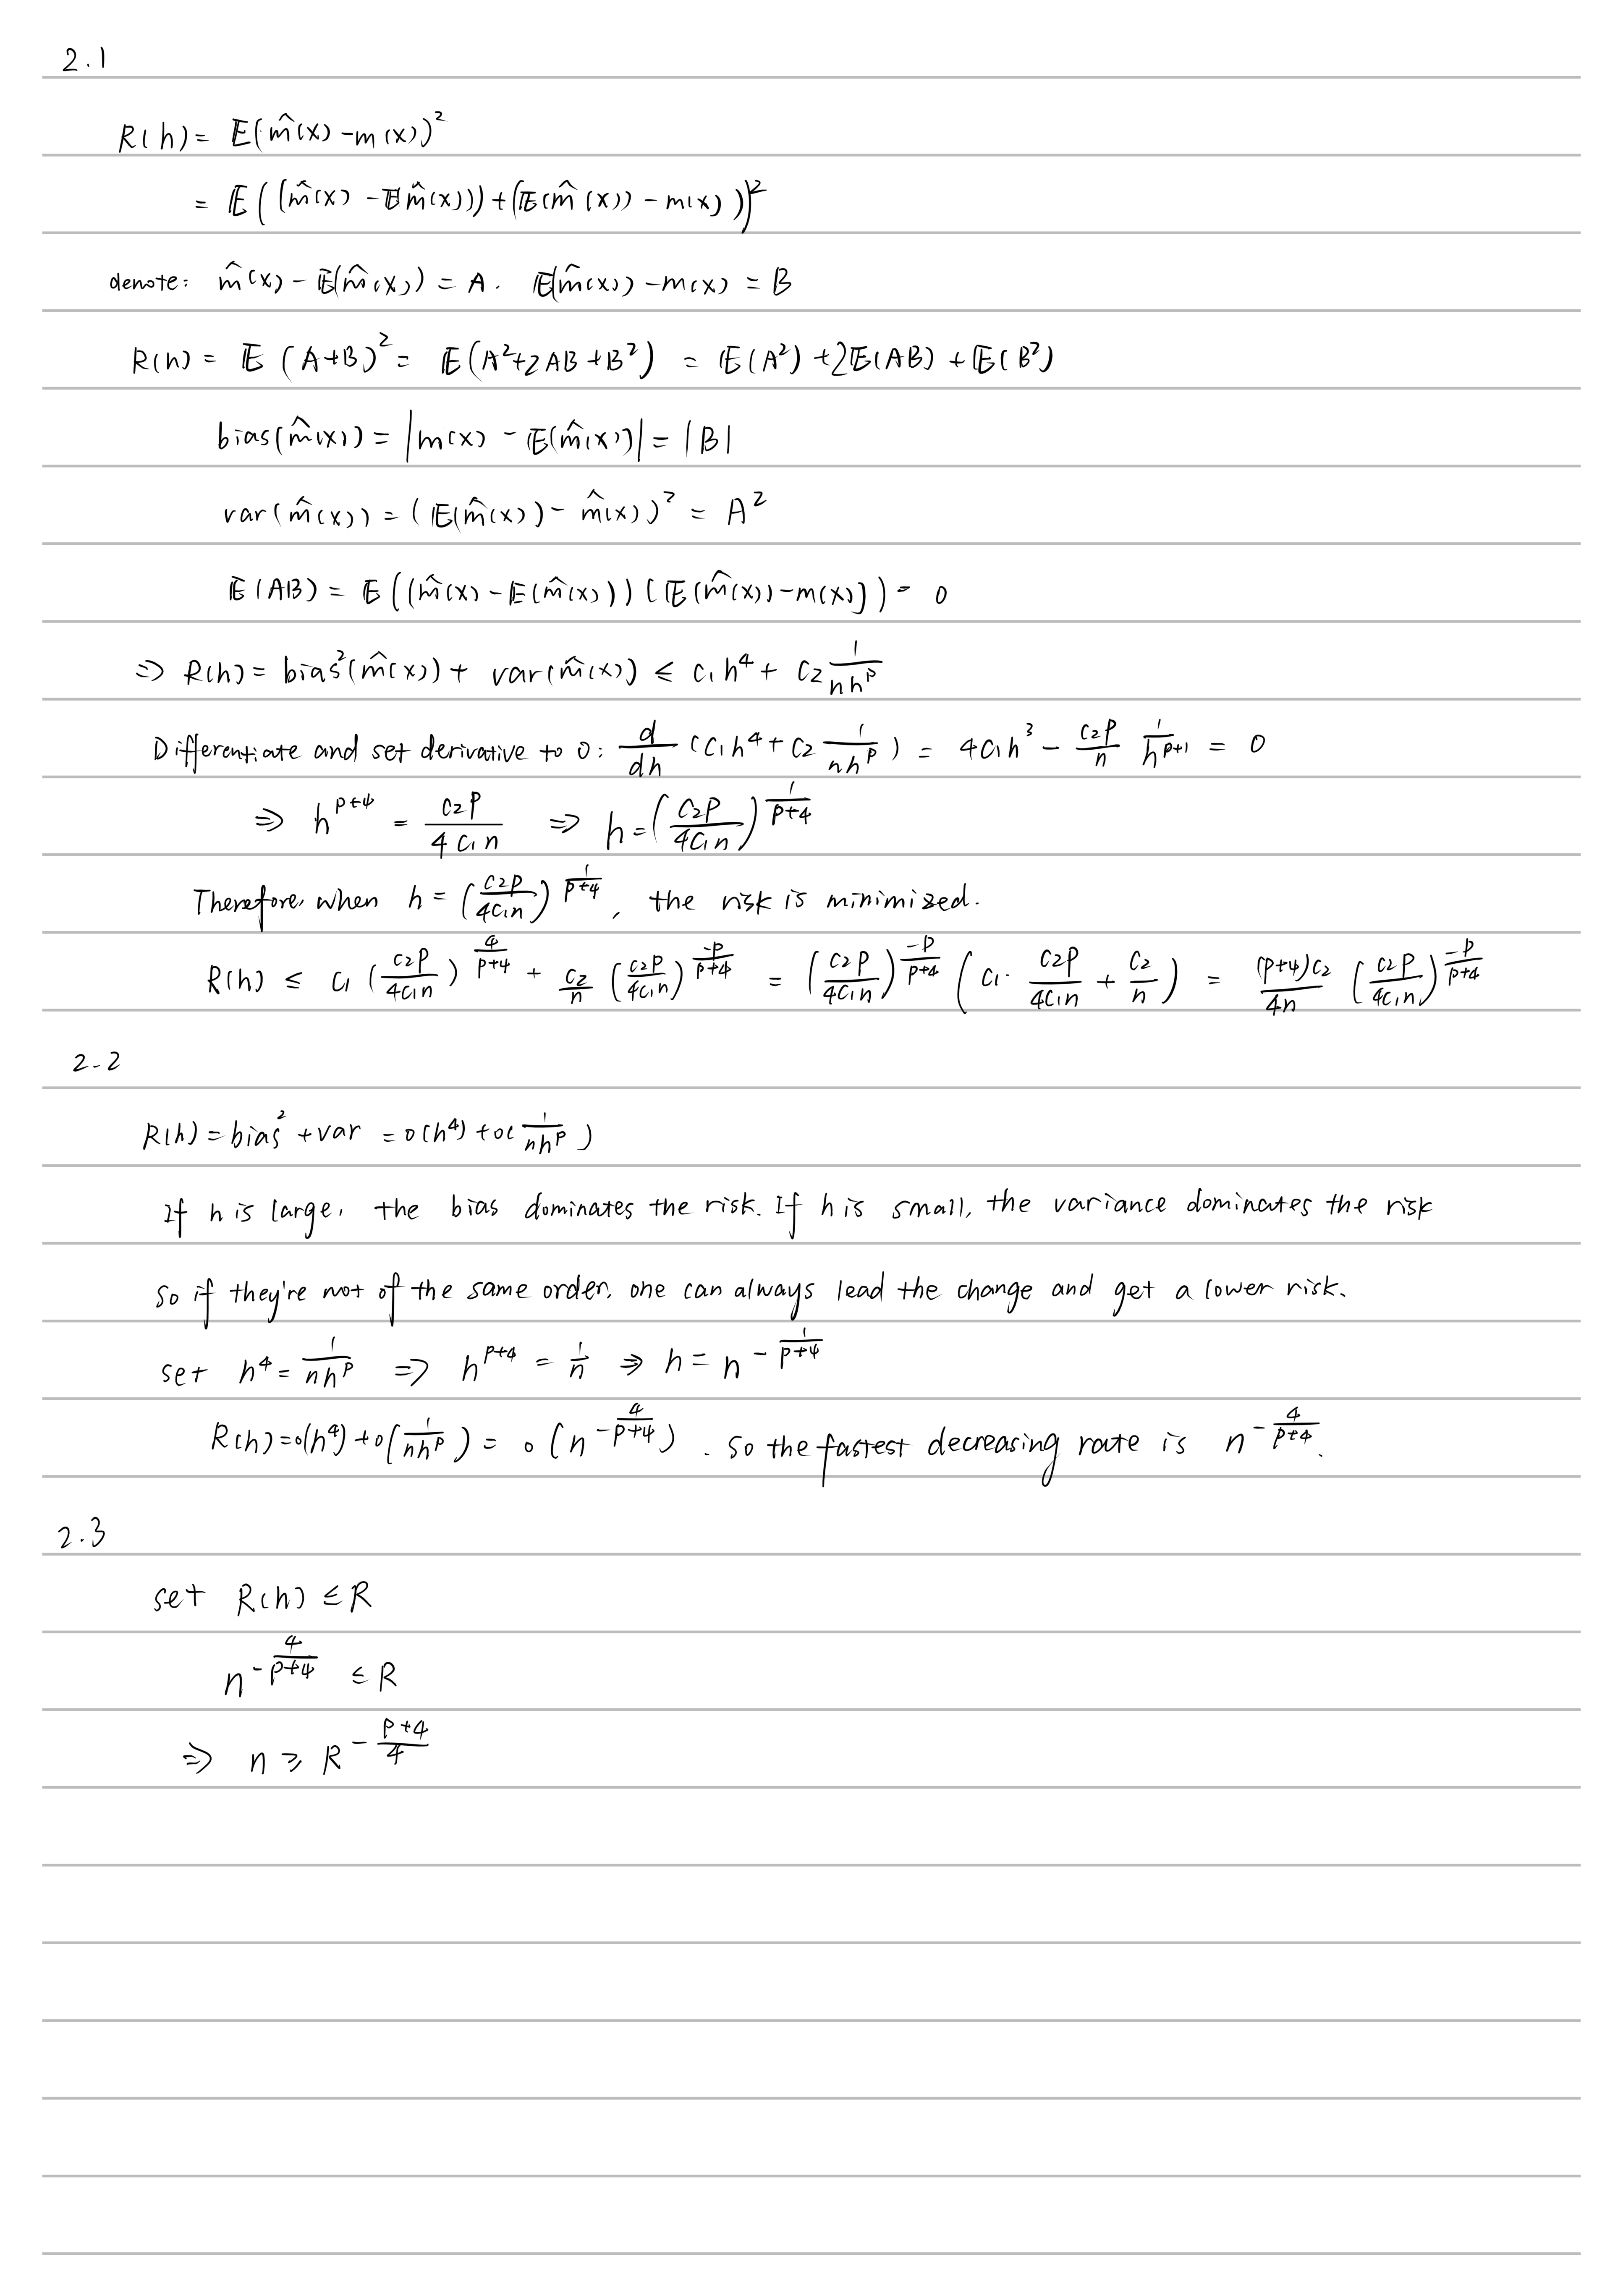 2.1
R(h) = 𝔼(m̂(x) - m(x))²
= 𝔼((m̂(x) - 𝔼m̂(x))) + (𝔼(m̂(x)) - m(x)))²
denote: m̂(x) - 𝔼(m̂(x)) = A. 𝔼(m̂(x)) - m(x) = B
R(h) = 𝔼(A+B)² = 𝔼(A²+2AB+B²) = 𝔼(A²) + 2𝔼(AB) + 𝔼(B²)
bias(m̂(x)) = |m(x) - 𝔼(m̂(x))| = |B|
var(m̂(x)) = (𝔼(m̂(x)) - m̂(x))² = A²
𝔼(AB) = 𝔼((m̂(x) - 𝔼(m̂(x))) (𝔼(m̂(x)) - m(x))) = 0
⇒ R(h) = bias²(m̂(x)) + var(m̂(x)) ≤ c₁h⁴ + c₂ 1/(nh^p)
Differentiate and set derivative to 0: d/dh (c₁h⁴ + c₂ 1/(nh^p)) = 4c₁h³ - (c₂p/n) 1/h^(p+1) = 0
⇒ h^(p+4) = c₂p/(4c₁n) ⇒ h = (c₂p/(4c₁n))^(1/(p+4))
Therefore, when h = (c₂p/(4c₁n))^(1/(p+4)), the risk is minimized.
R(h) ≤ c₁(c₂p/(4c₁n))^(4/(p+4)) + (c₂/n)(c₂p/(4c₁n))^(-p/(p+4)) = (c₂p/(4c₁n))^(-p/(p+4)) (c₁· c₂p/(4c₁n) + c₂/n) = ((p+4)c₂/(4n)) (c₂p/(4c₁n))^(-p/(p+4))
2-2
R(h) = bias² + var = o(h⁴) + o(1/(nh^p))
If h is large, the bias dominates the risk. If h is small, the variance dominates the risk
So if they're not of the same order, one can always lead the change and get a lower risk.
set h⁴ = 1/(nh^p) ⇒ h^(p+4) = 1/n ⇒ h = n^(-1/(p+4))
R(h) = o(h⁴) + o(1/(nh^p)) = o(n^(-4/(p+4))). So the fastest decreasing rate is n^(-4/(p+4)).
2.3
set R(h) ≤ R
n^(-4/(p+4)) ≤ R
⇒ n ≥ R^(-(p+4)/4)